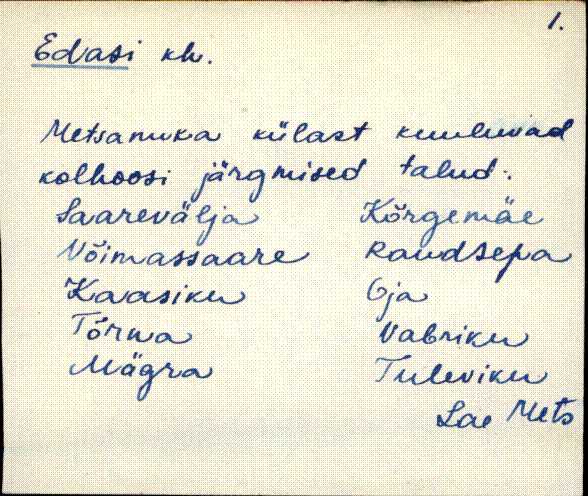 1.
Edasi kh.
Metsanuka külast kuuluvad
kolhoosi järgmised talud:
Saarevälja Kõrgemäe
Võimassaare Raudsepa
Kaasiku Oja
Tõrma Vabriku
Mägra Tuleviku
Lae Mets